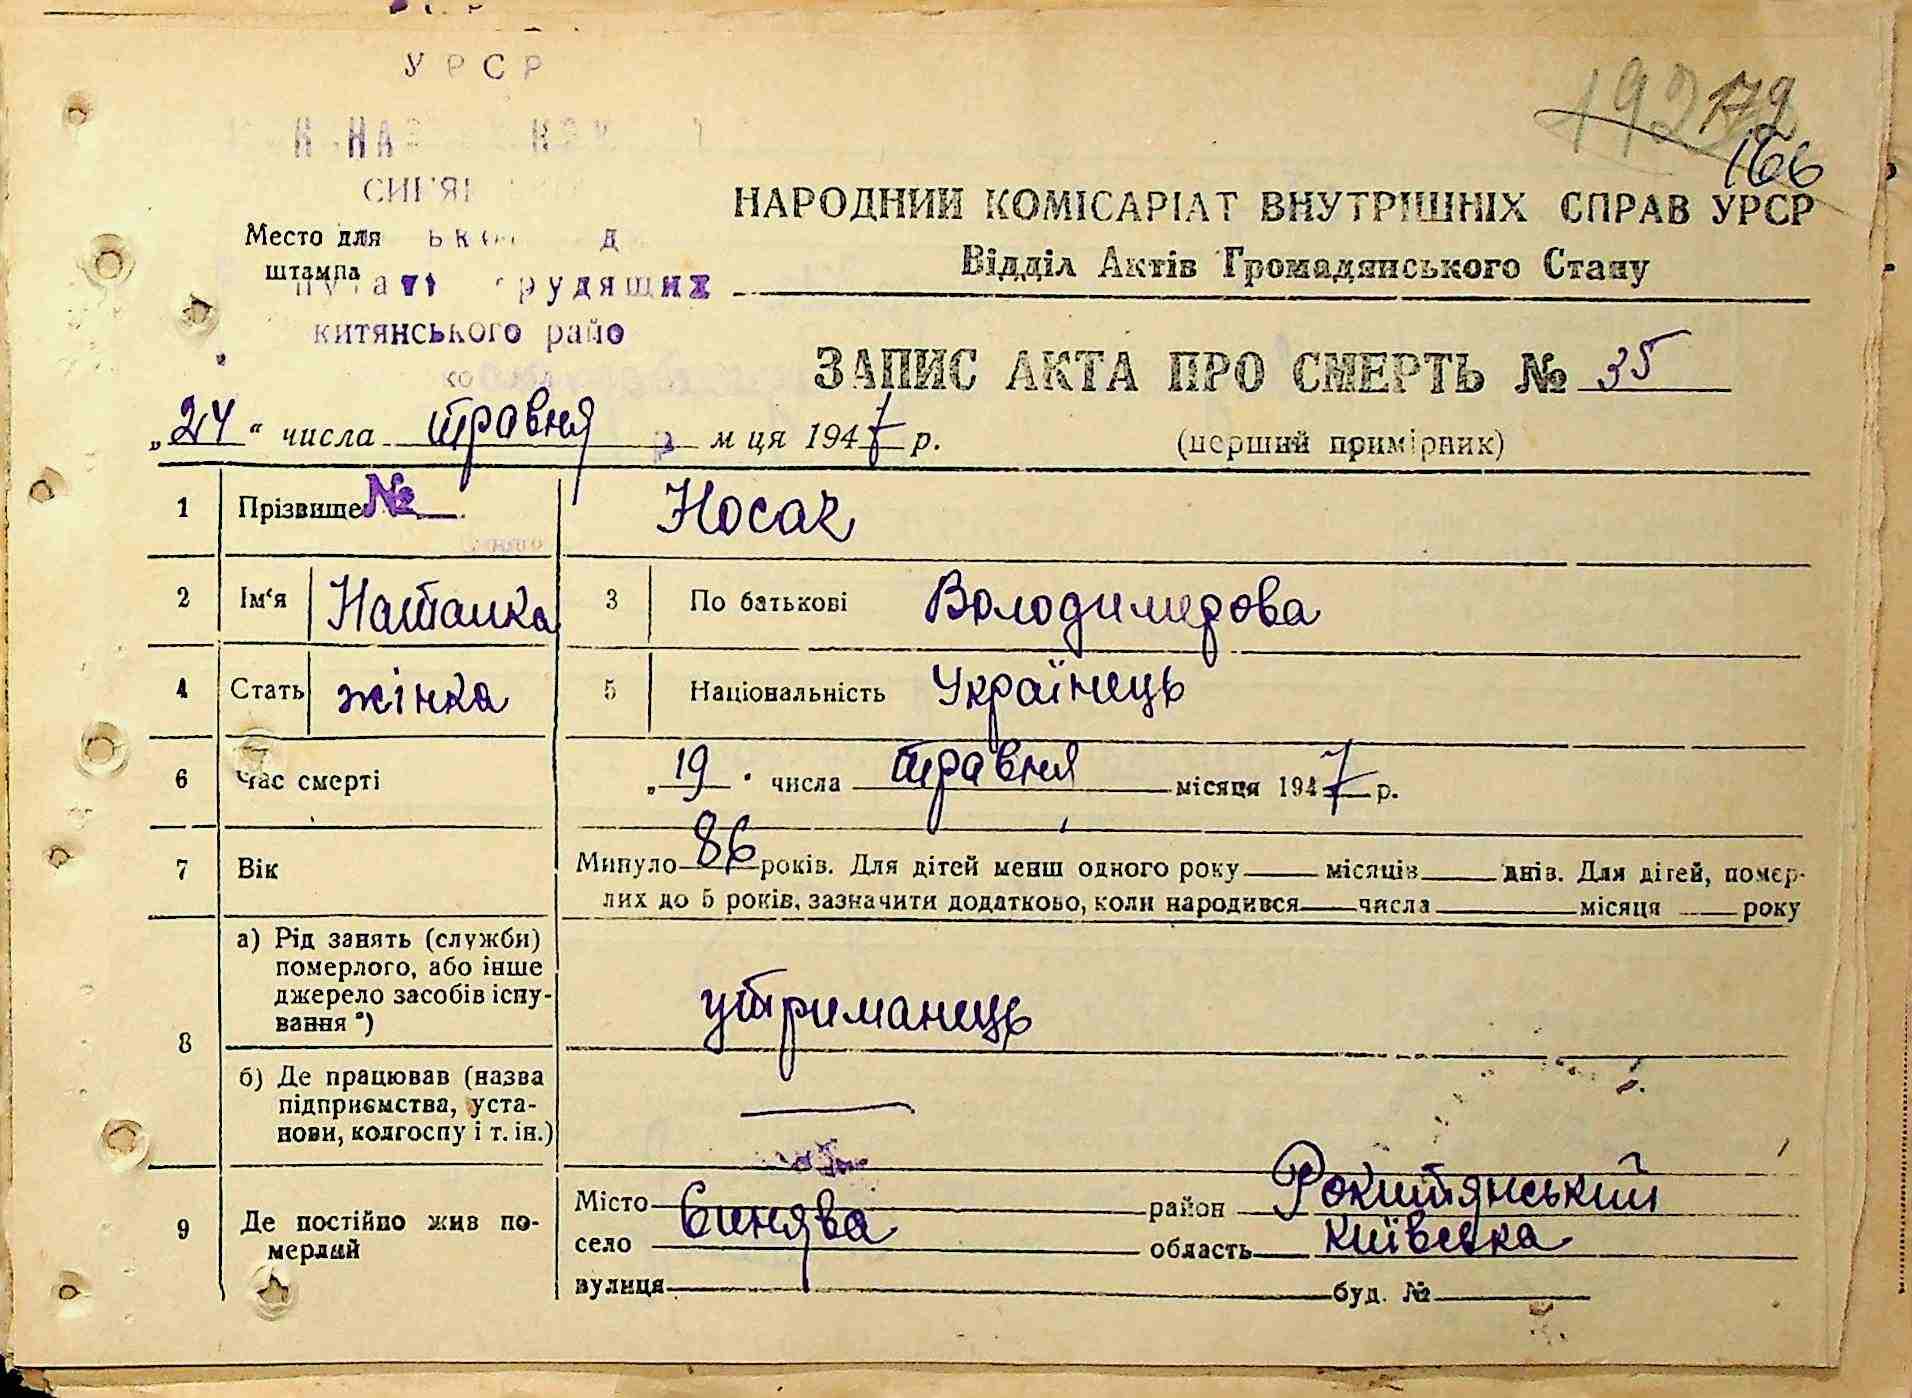 УРСР
192 172
166
СИН'ЯВ
НАРОДНИЙ КОМІСАРІАТ ВНУТРІШНІХ СПРАВ УРСР
Место для
штампа
Відділ Актів Громадянського Стану
путатів трудящих
китянського райо
ЗАПИС АКТА ПРО СМЕРТЬ № 35
„24“ числа травня м ця 1947 р.
(перший примірник)
1 Прізвище № Носач
2 Ім‘я Наталка 3 По батькові Володимерова
4 Стать жінка 5 Національність Українець
6 Час смерті „19“ числа травня місяця 1947 р.
7 Вік Минуло 86 років. Для дітей менш одного року місяців днів. Для дітей, помер-
лих до 5 років, зазначити додатково, коли народився числа місяця року
8 а) Рід занять (служби)
померлого, або інше
джерело засобів існу-
вання *) утриманець
б) Де працював (назва
підприємства, уста-
нови, колгоспу і т. ін.) —
9 Де постійно жив по-
мерлий
Місто Синява район Рокитянський
село область Київська
вулиця буд. №